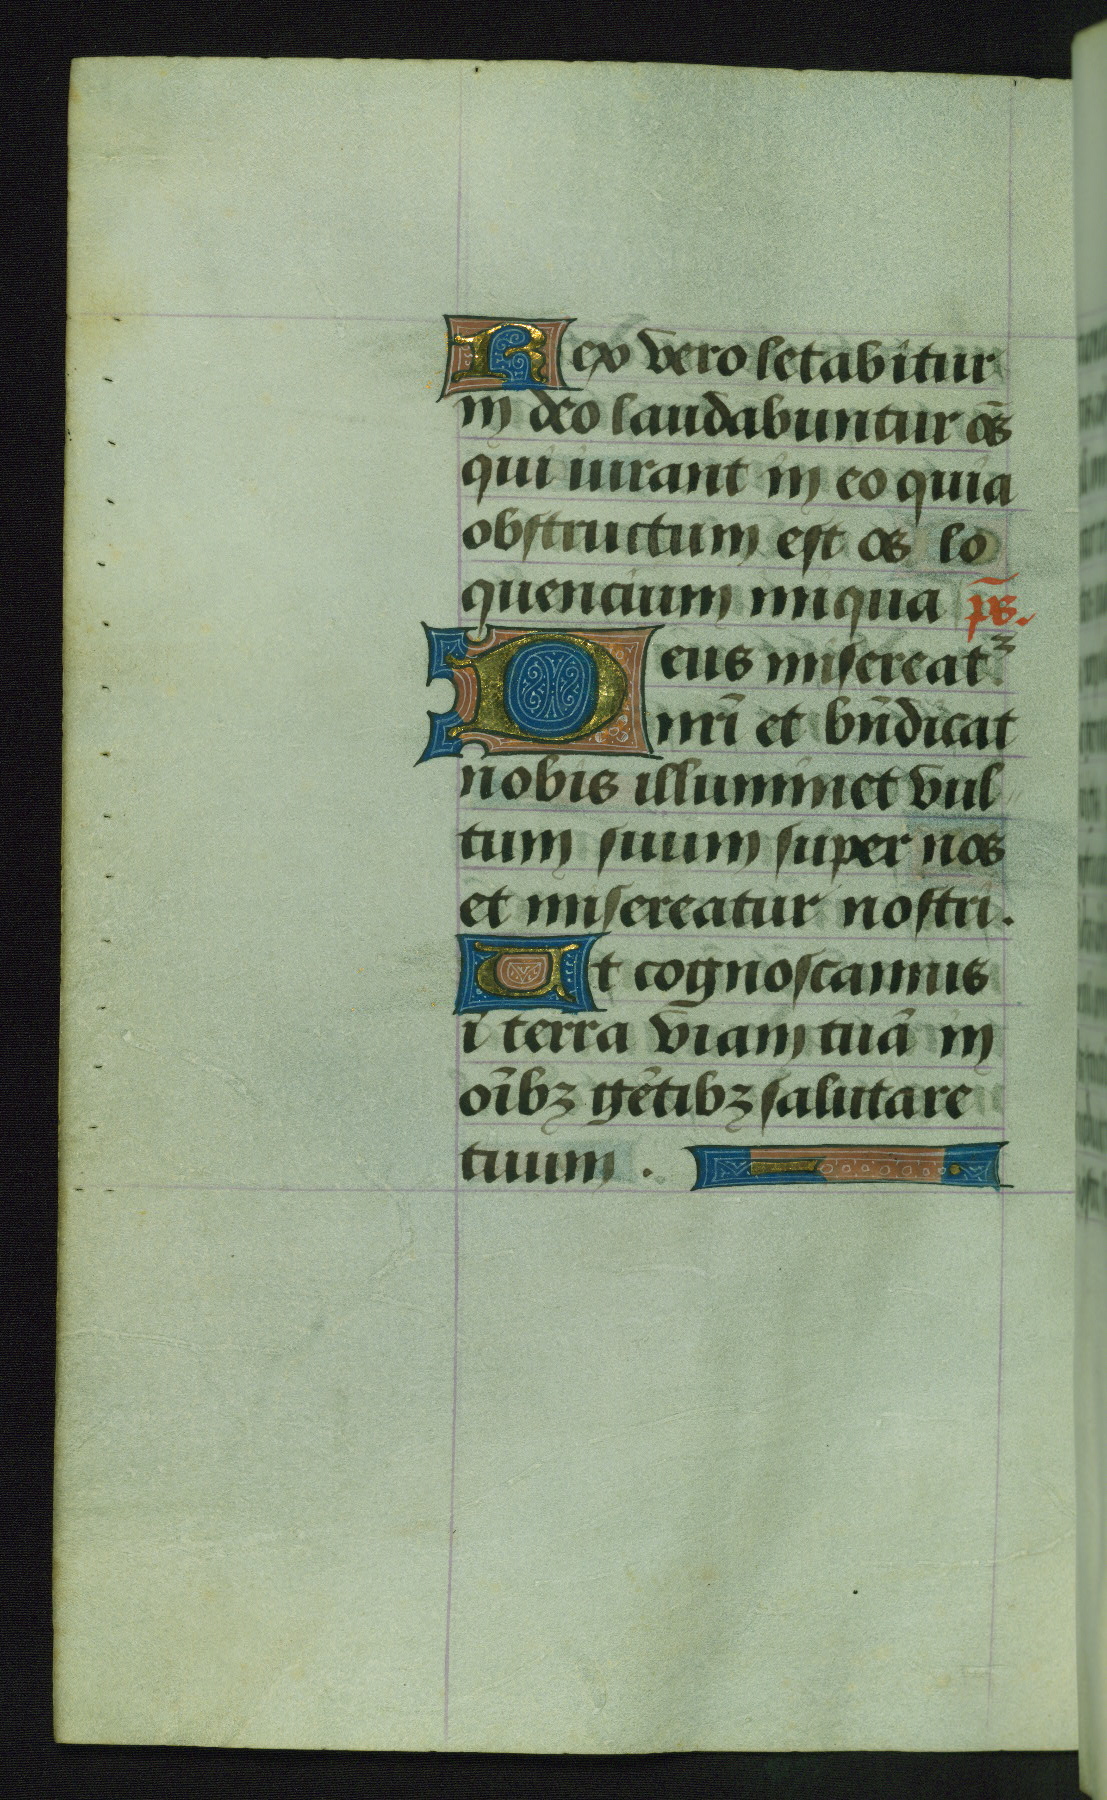 Rex vero letabitur
in deo laudabuntur oc̄s
qui iurant in eo quia
obstructum est os lo
quencium iniqua ps̄.
Deus misereat᷑
nr̄i et bn̄dicat
nobis illuminet vul
tum suum super nos
et misereatur nostri.
Ut cognoscamus
ī terra viam tuā in
oībꝫ gētibꝫ salutare
tuum .